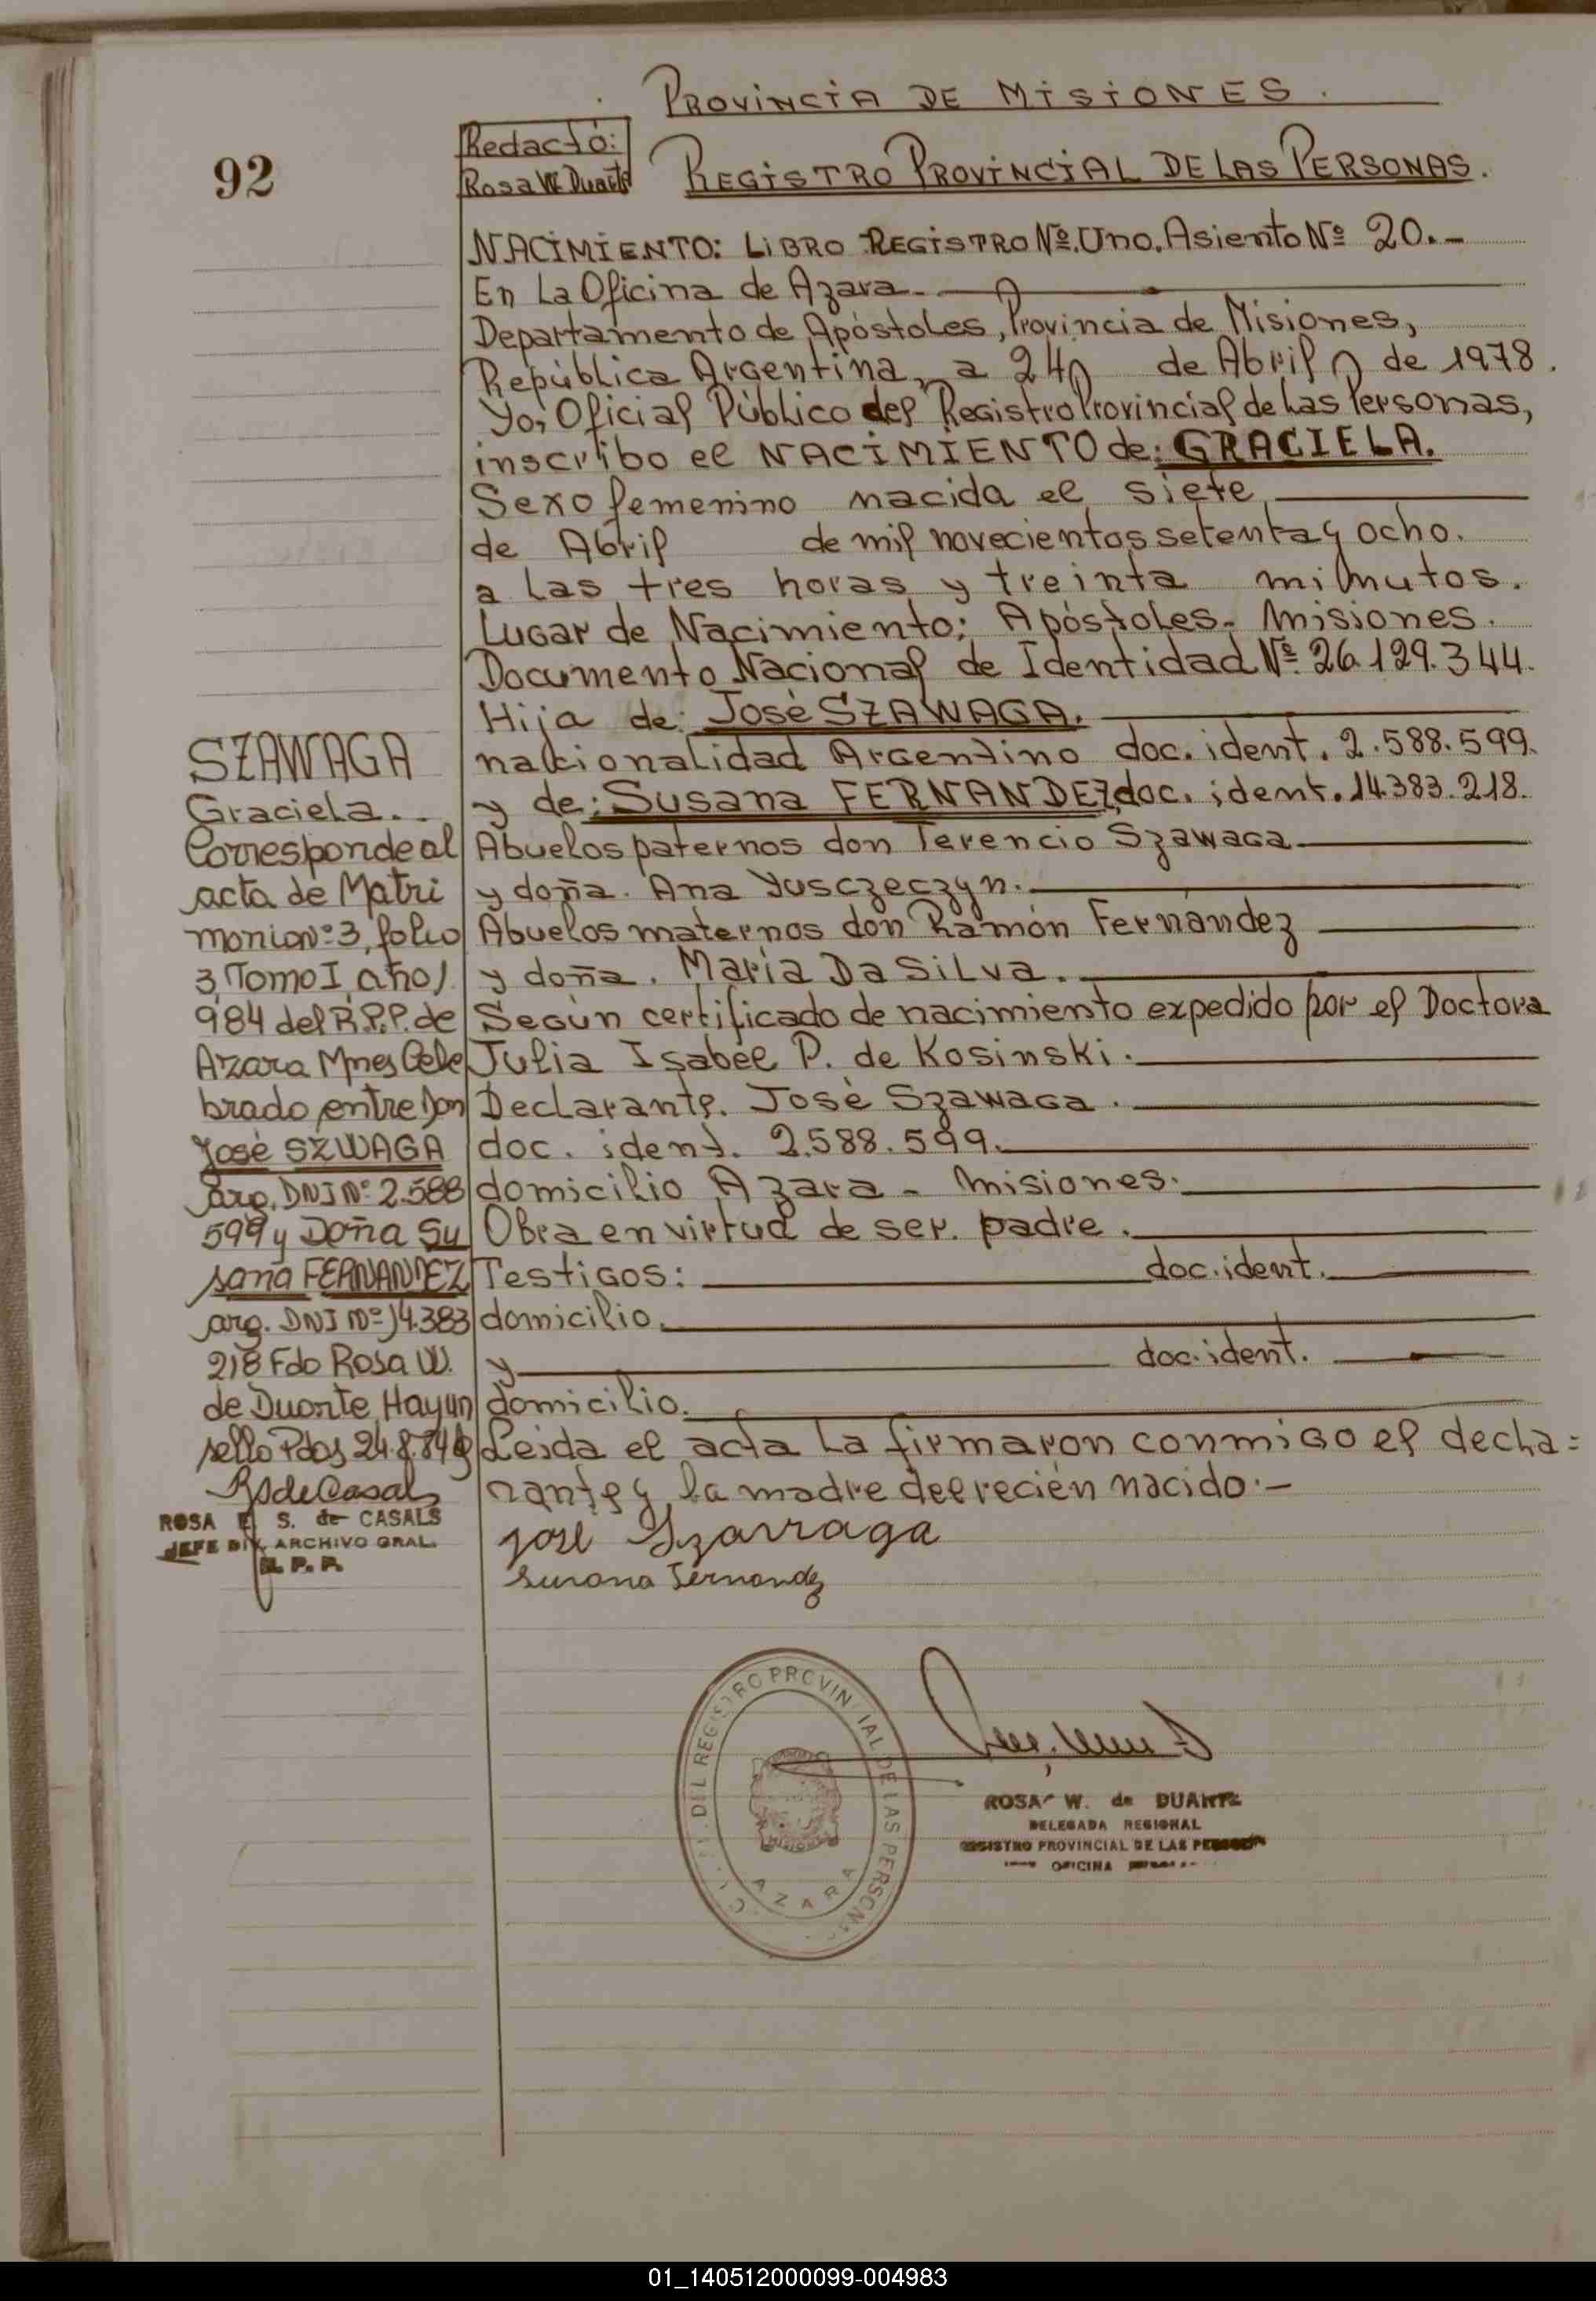 PROVINCIA DE MISIONES.
92
Redactó:
Rosa W. Duarte
REGISTRO PROVINCIAL DE LAS PERSONAS.
NACIMIENTO: LIBRO REGISTRO Nº. Uno. Asiento Nº 20.-
En La Oficina de Azara.
Departamento de Apóstoles, Provincia de Misiones,
República Argentina, a 24 de Abril de 1978.
Yo, Oficial Público del Registro Provincial de Las Personas,
inscribo el NACIMIENTO de: GRACIELA.
Sexo femenino nacida el siete
de Abril de mil novecientos setenta y ocho.
a Las tres horas y treinta minutos.
Lugar de Nacimiento: Apóstoles- Misiones.
Documento Nacional de Identidad Nº 26.129.344.
Hija de: José SZAWAGA.
nacionalidad Argentino doc. ident. 2.588.599.
y de: Susana FERNANDEZ doc. ident. 14.383.218.
Abuelos paternos don Terencio Szawaga
y doña. Ana Yusczeczyn.
Abuelos maternos don Ramón Fernández
y doña. María Da Silva.
Según certificado de nacimiento expedido por el Doctora
Julia Isabel P. de Kosinski.
Declarante. José Szawaga.
doc. ident. 2.588.599.
domicilio Azara - Misiones.
Obra en virtud de ser. padre.
Testigos: doc. ident.
domicilio.
y doc. ident.
domicilio.
Leída el acta La firmaron conmigo el decla=
rante y la madre del recién nacido.-
José Szawaga
Susana Fernandez
SZAWAGA
Graciela..
Corresponde al
acta de Matri
monio Nº 3, folio
3, Tomo I, año 1
984 del R.P.P. de
Azara Mnes Cele
brado entre Don
José SZWAGA
arg. DNI Nº 2.588
599 y Doña Su
sana FERNANDEZ
arg. DNI Nº 14.383
218 Fdo Rosa W.
de Duarte Hay un
sello Pdas 24.8.84
RSdeCasals
ROSA E. S. de CASALS
JEFE DIV. ARCHIVO GRAL.
R. P. P.
DEL REGISTRO PROVINCIAL DE LAS PERSONAS
AZARA
ROSA W. de DUARTE
DELEGADA REGIONAL
REGISTRO PROVINCIAL DE LAS PERSONAS
OFICINA
01_140512000099-004983